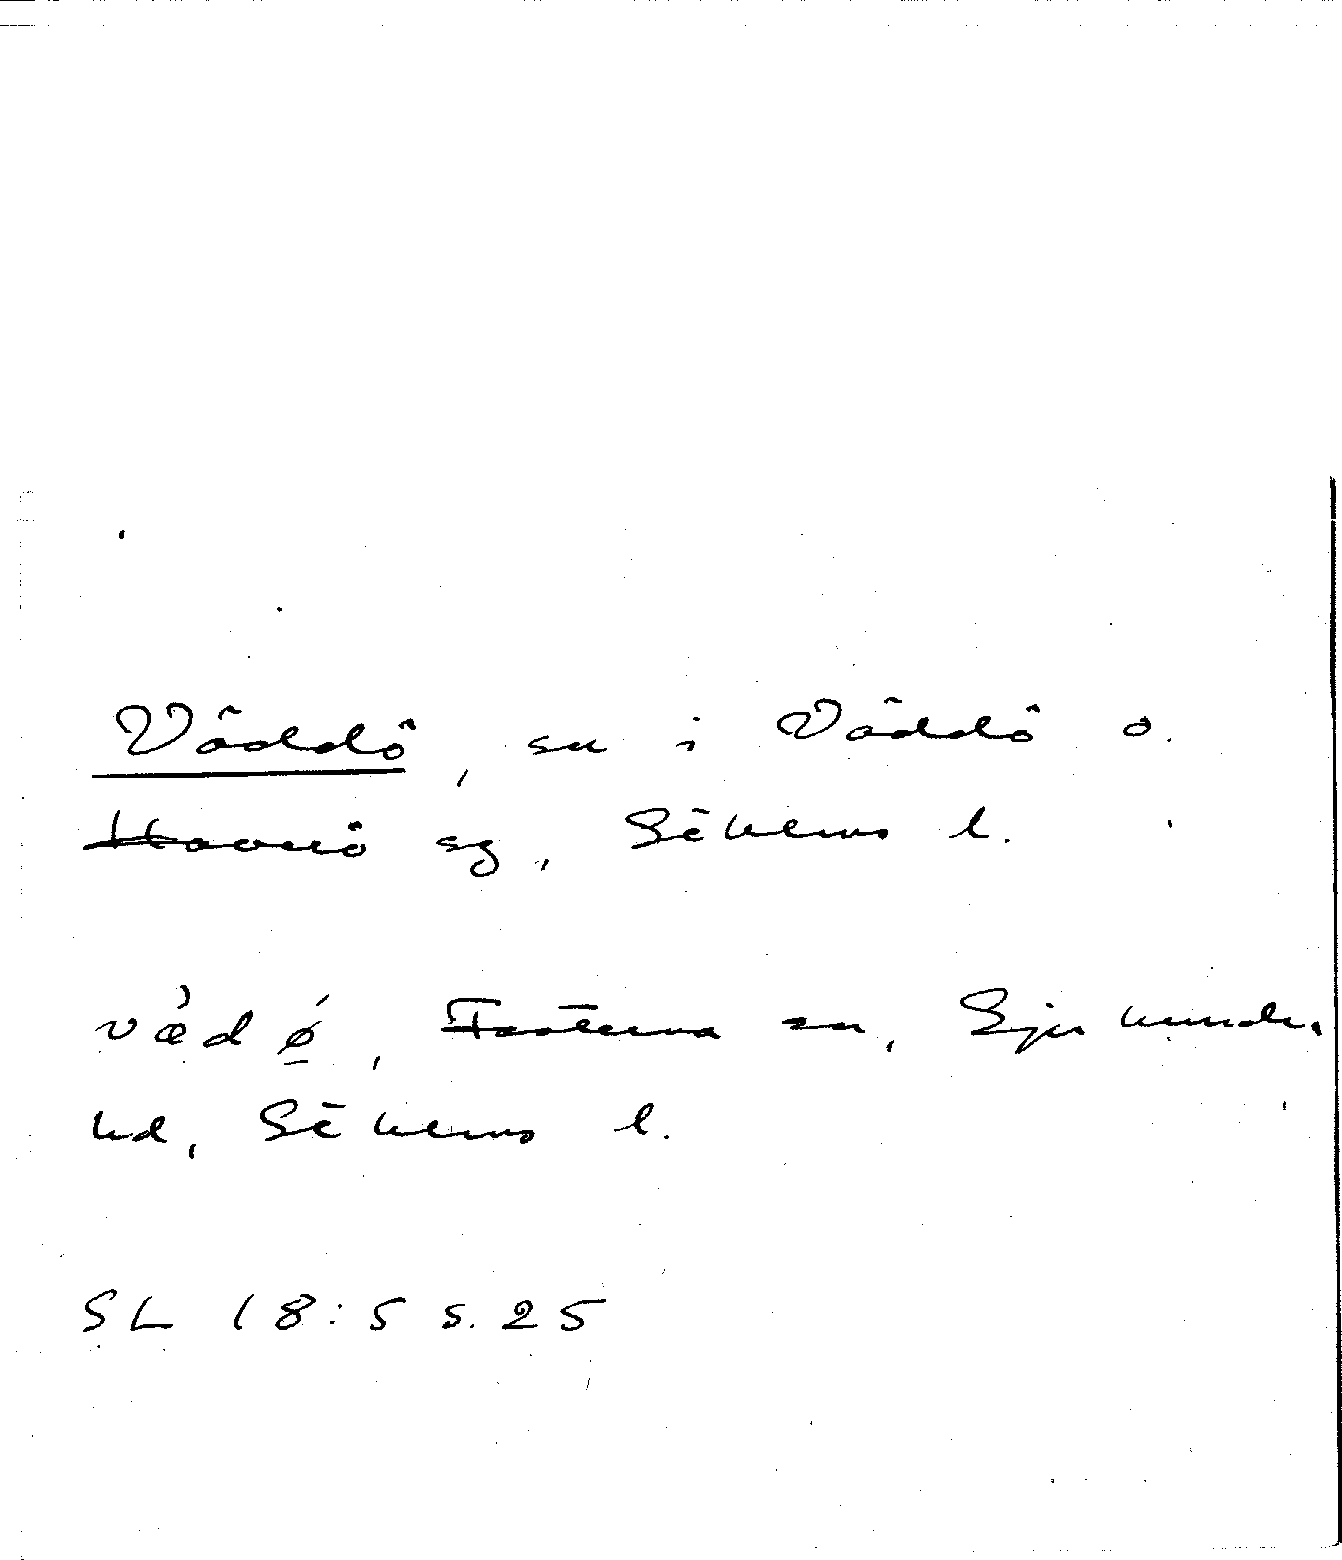 Väddö, sn i Väddö o.
Häverö sg, Sthlms l.
vǽdǿ̱, Fasterna sn, Sjuhundra
hd, Sthlms l.
SL 18:5 s. 25